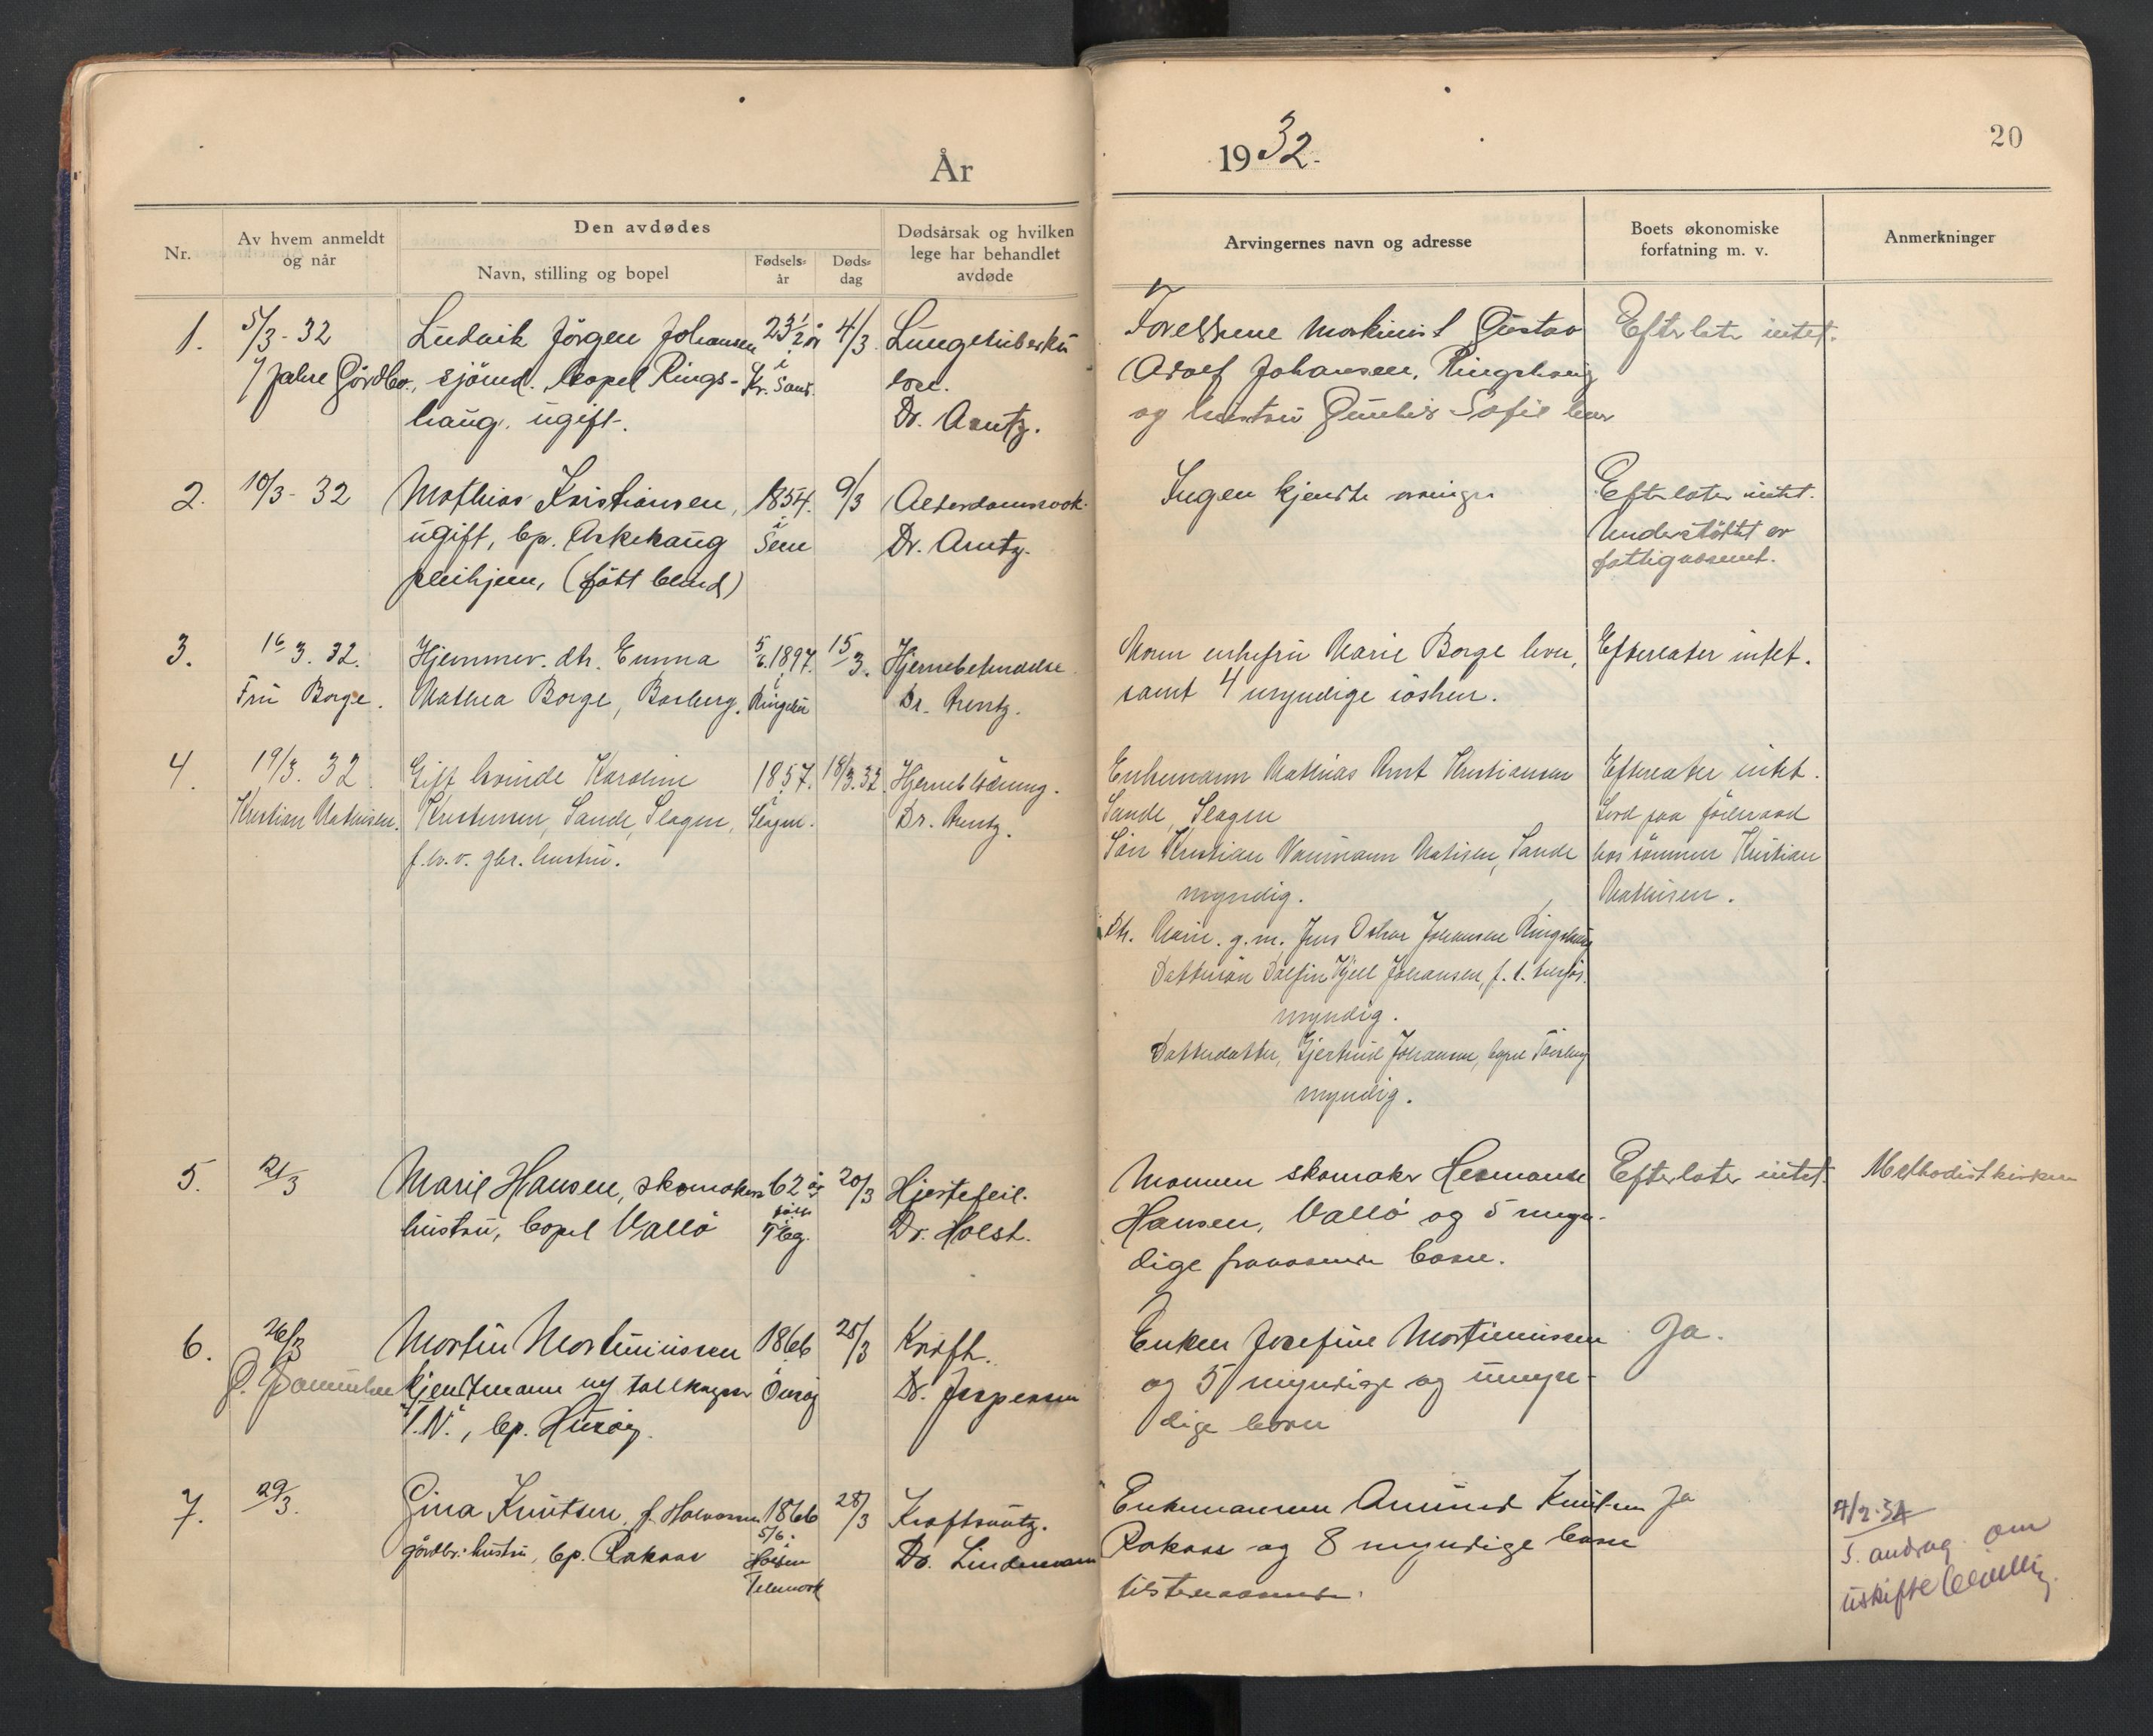 År
1932.
20
Nr.
Av hvem anmeldt
og når
Den avdødes
Navn, stilling og bopel
Fødsels-
år
Døds-
dag
Dødsårsak og hvilken
lege har behandlet
avdøde
Arvingernes navn og adresse
Boets økonomiske
forfatning m. v.
Anmerkninger
1.
5/3 - 32
Ludvik Jörgen Johansen
sjömd. bopel Rings-
haug. ugift.
23 1/2 år
i
4/3
Lungetuberku
lose.
Dr. Arntz.
Foreldrene maskinist Gustav
Adolf Johansen, Ringshaug
og hustru Gunhild Sofie lever
Efterlater intet.
2.
10/3 - 32
Mathias Kristiansen,
ugift, bp. Askehaug
pleihjem, (født blind)
1854.
i
Sem
9/3
Alderdomssvak.
Dr. Arntz.
Ingen kjendte arvinger
Efterlater intet.
Understöttet av
fattigvesenet.
3.
16/3. 32.
Fru Borge.
Hjemmev. dtr. Emma
Mathea Borge, Basberg.
5/6.1897.
i
15/3.
Hjernebetendelse
Dr. Arentz.
Moren enkefru Marie Borge lever,
samt 4 myndige sösken.
Efterlater intet.
4.
19/3. 32
Kristian Mathisen.
Gift kvinde Karoline
Kristiansen, Sande, Slagen,
f.hv.v. gbr. hustru.
1857.
i
Slagen.
18/3.32.
Hjerneblödning.
Dr. Arentz.
Enkemann Mathias Arnt Kristiansen
Sande, Slagen
Sön Kristian Mathisen, Sande
myndig.
Dtr. Marie. g.m. Jens Oskar Johansen Ringshaug
Dattersön Kjell Johansen, f. t. tilsjös.
myndig.
Datterdatter, Gjertrud Johansen, bopel Tönsberg
myndig.
Efterlater intet.
Levd paa föderaad
hos sönnen Kristian
Mathisen.
5.
21/3
Marie Hansen, skomakers
hustru, bopel Vallö
62 år
född
i
Tbg.
20/3
Hjertefeil.
Dr. Holst.
Mannen skomaker Hermann
Hansen, Vallö og 5 myn-
dige fraværende barn.
Efterlater intet.
Methodistkirken
6.
26/3
Martin Martiniussen
kjendtmann ny
"V.N.", bp. Husöy.
1866
i
25/3
Kræft.
Dr. Jespersen
Enken Josefine Martiniussen
og 5 myndige og umyn-
dige barn
Ja.
7.
29/3.
Gina Knutsen, f. Halvorsen
gårdbr. hustru, bp. Rakaas
1866
5/6
i
Telemark
28/3
Kræftsvulst.
Dr. Lindemann
Enkemannen Amund Knutsen
Rakaas og 8 myndige barn
tilstedeværende.
Ja
s. andrag om
uskiftebevilling.